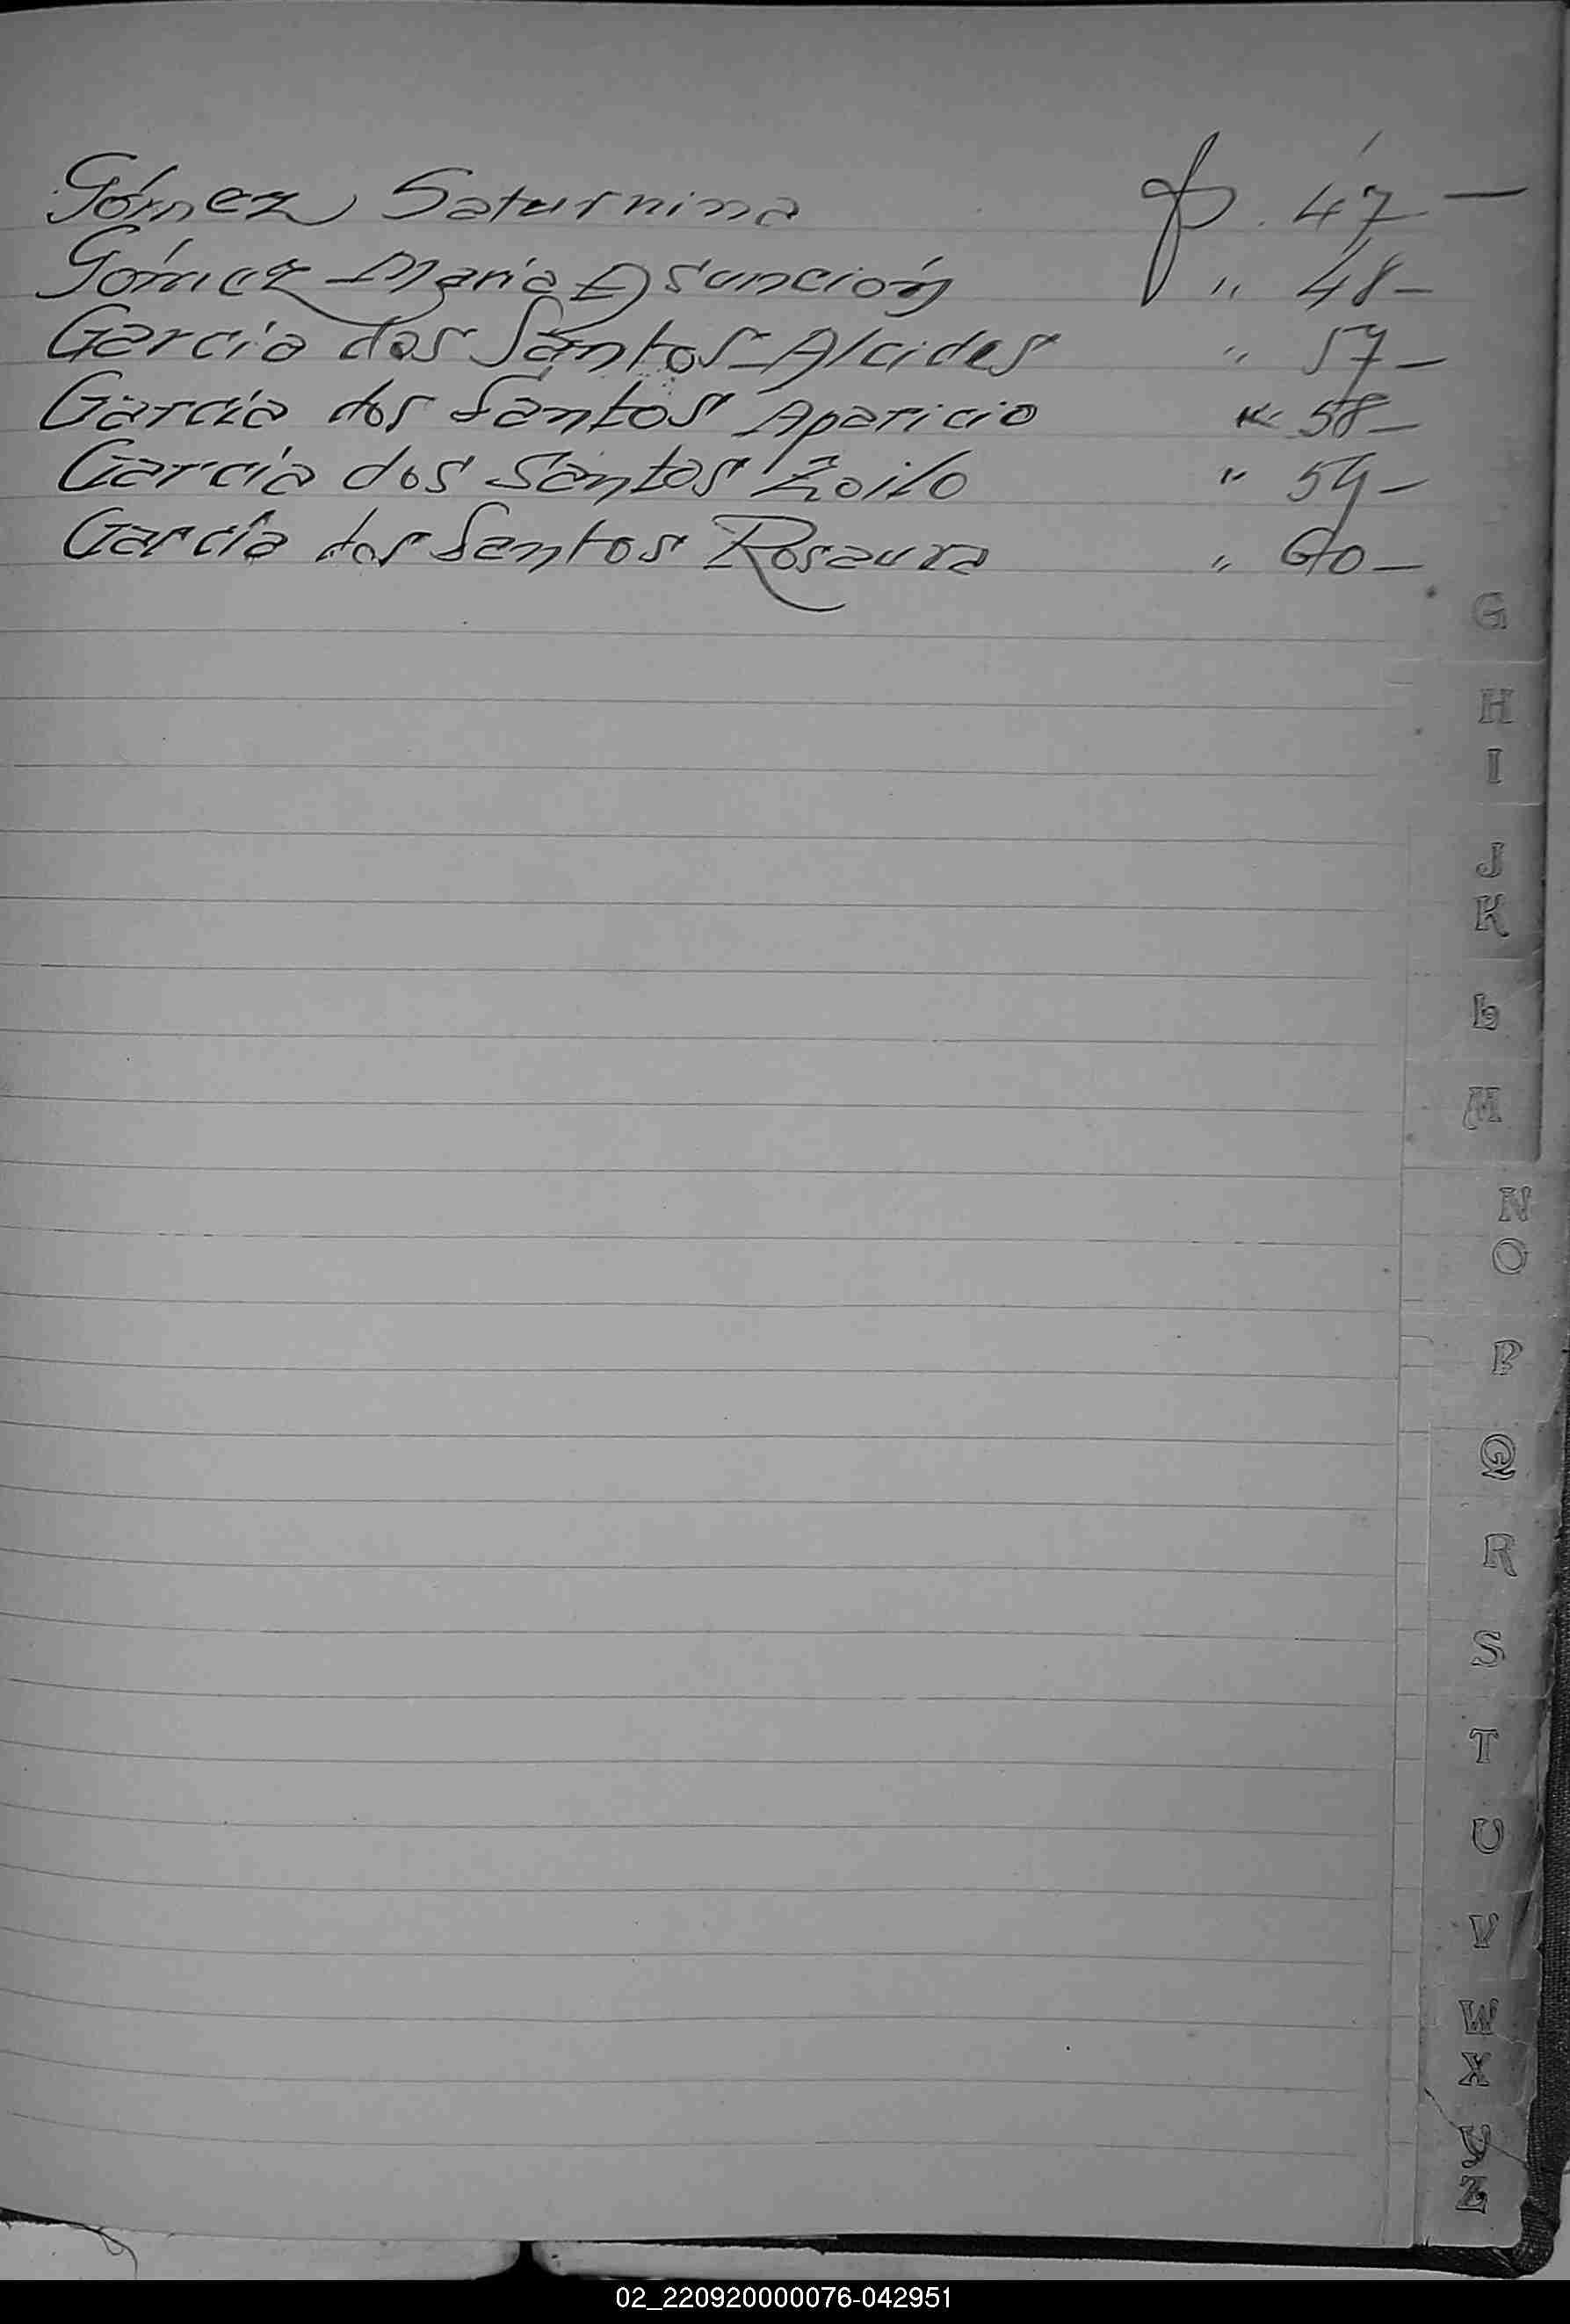 Gómez Saturnina f. 47 —
Gómez María Asunción " 48 —
García dos Santos Alcides " 57 —
García dos Santos Aparicio " 58 —
García dos Santos Zoilo " 59 —
García dos Santos Rosaura " 60 —
G
H
I
J
K
L
M
N
O
P
Q
R
S
T
U
V
W
X
Y
Z
02_220920000076-042951